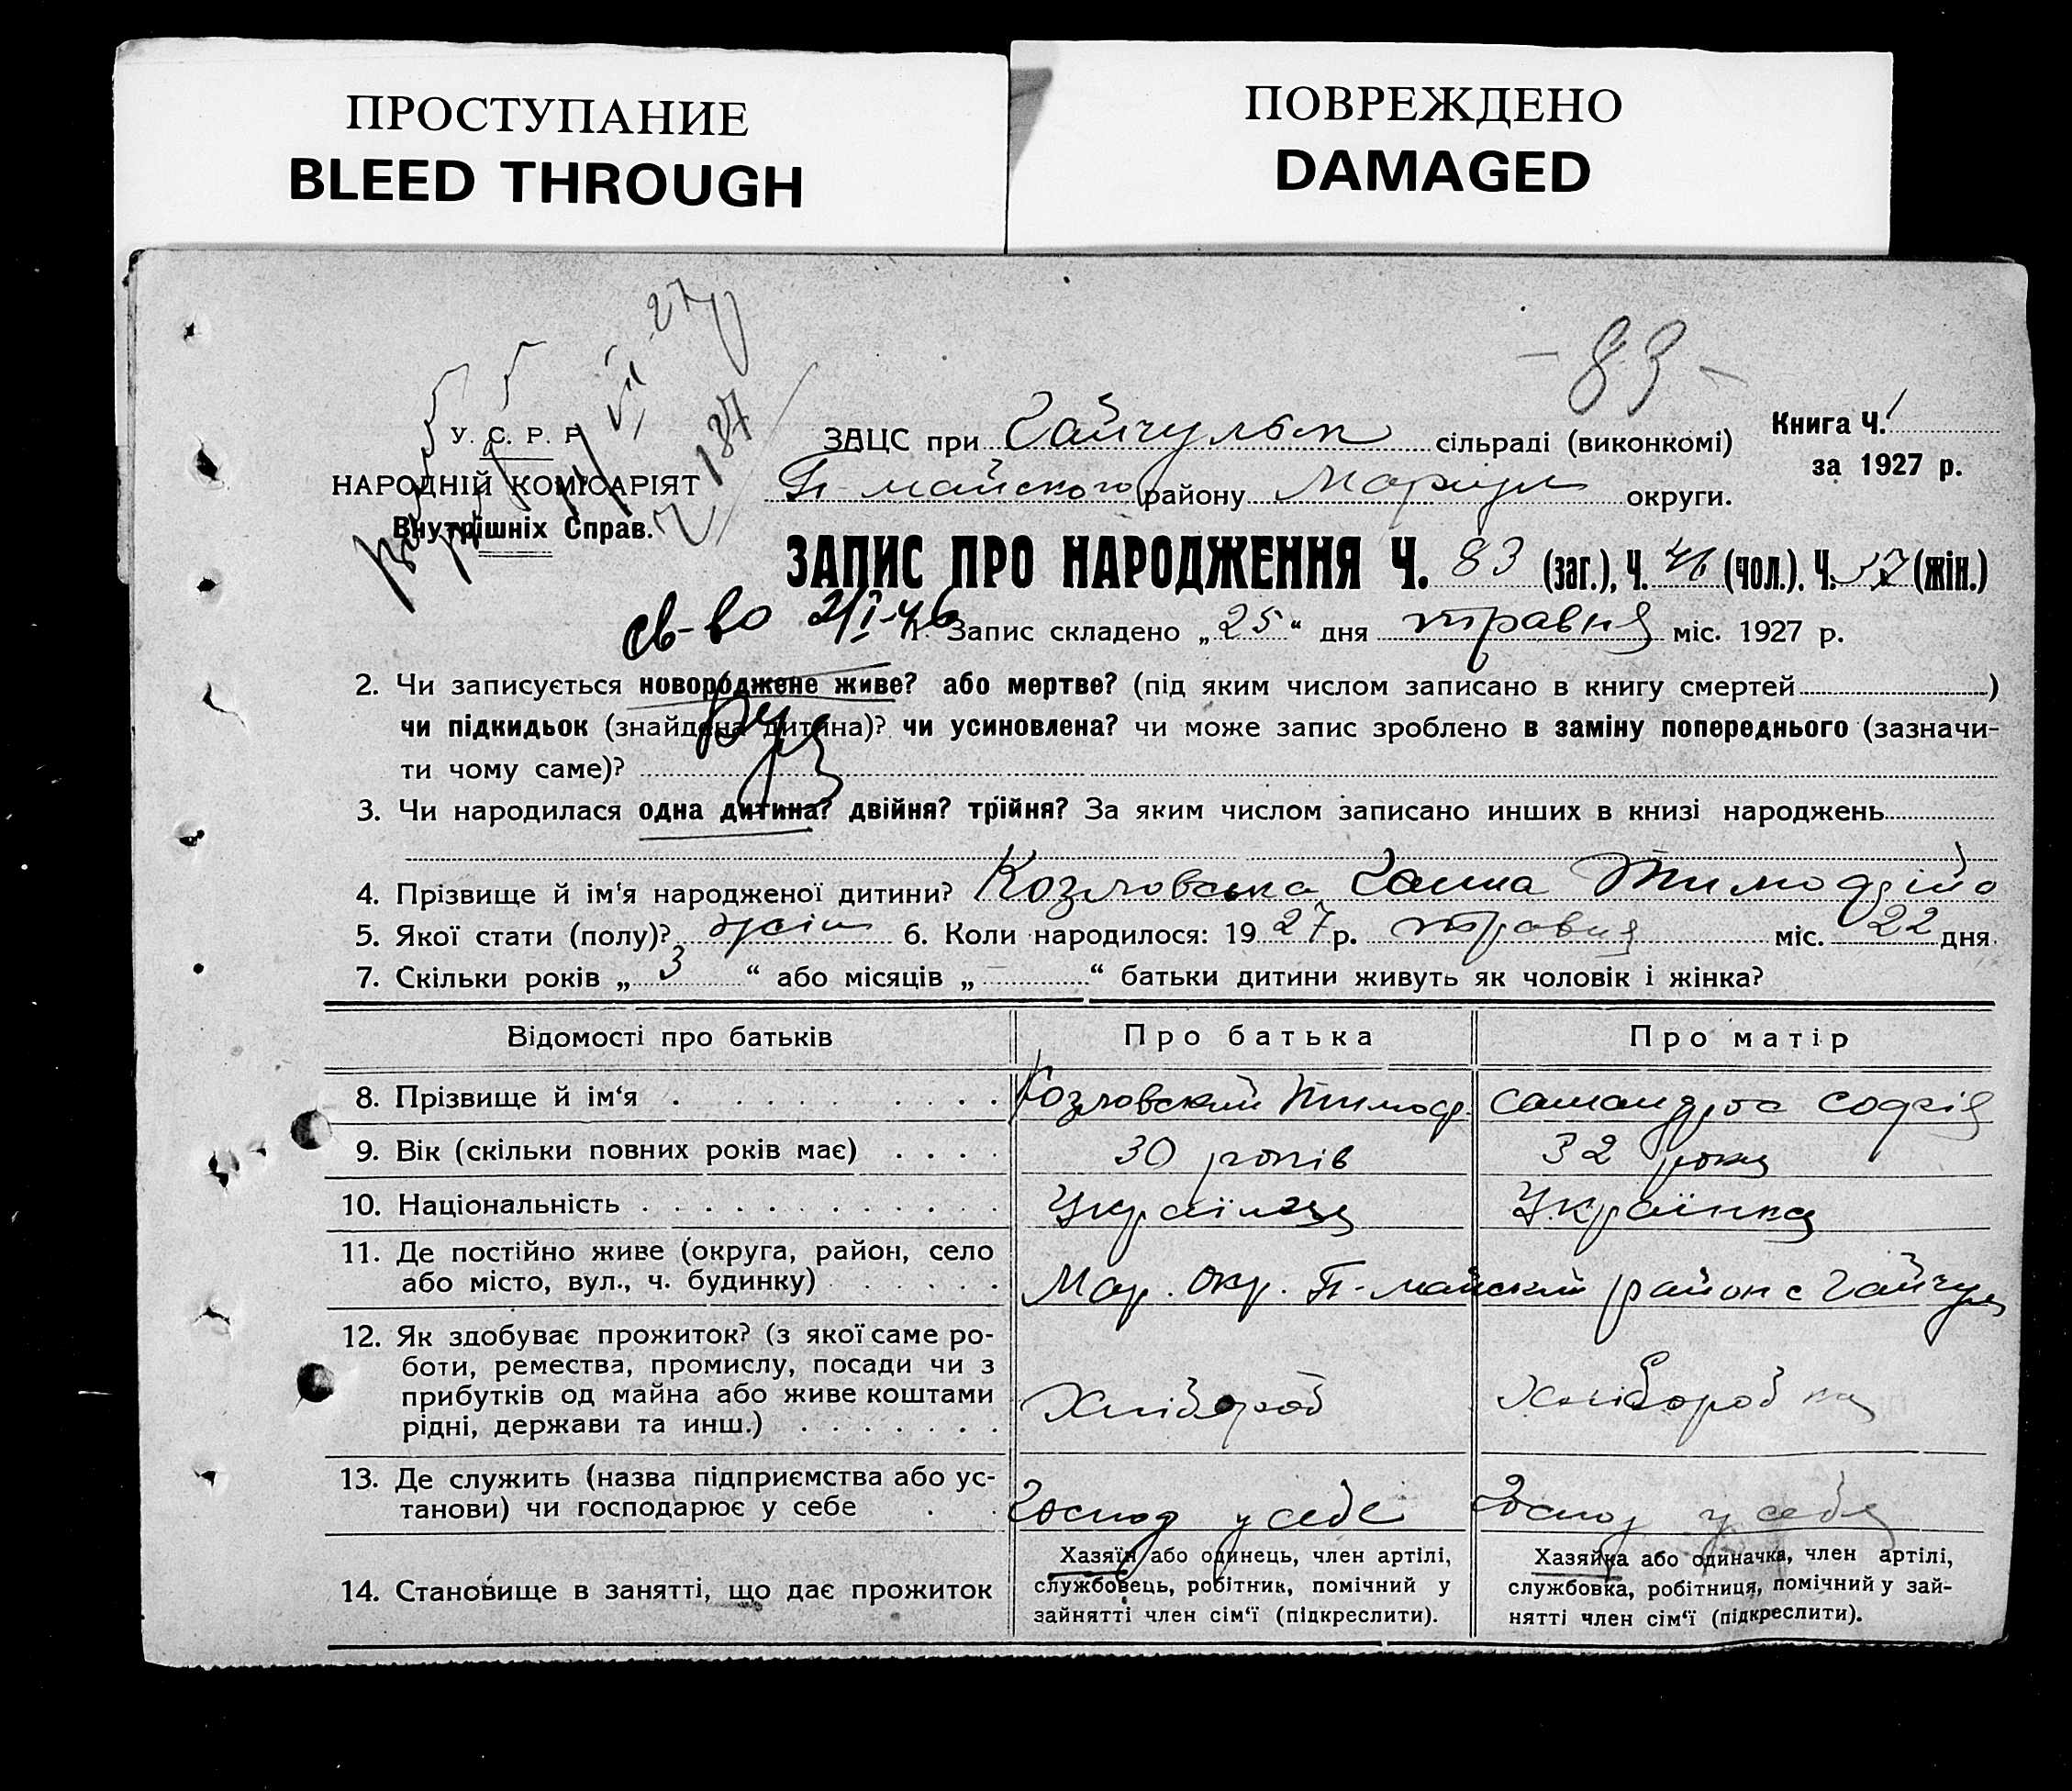 ПРОСТУПАНИЕ
BLEED THROUGH
ПОВРЕЖДЕНО
DAMAGED
- 83 -
У. С. Р. Р.
НАРОДНІЙ КОМІСАРІЯТ
Внутрішніх Справ.
ЗАЦС при Гайчульск сільраді (виконкомі)
П-майского району Маріуп округи.
Книга Ч. 1
за 1927 р.
ЗАПИС ПРО НАРОДЖЕННЯ Ч. 83 (заг.), Ч. 46 (чол.). Ч. 37 (жін.)
св-во 2/I-46
1. Запис складено „25“ дня травня міс. 1927 р.
2. Чи записується новороджене живе? або мертве? (під яким числом записано в книгу смертей )
чи підкидьок (знайдена дитина)? чи усиновлена? чи може запис зроблено в заміну попереднього (зазначи-
ти чому саме)?
3. Чи народилася одна дитина? двійня? трійня? За яким числом записано инших в книзі народжень
4. Прізвище й ім‘я народженої дитини? Козловська Ганна Тимофійо
5. Якої стати (полу)? жін 6. Коли народилося: 1927 р. травня міс. 22 дня.
7. Скільки років „ 3 “ або місяців „ “ батьки дитини живуть як чоловік і жінка?
Відомості про батьків Про батька Про матір
8. Прізвище й ім‘я Козловский Тимоф. Самандрос Софія
9. Вік (скільки повних років має) 30 років 32 роки
10. Національність Українец Українка
11. Де постійно живе (округа, район, село
або місто, вул., ч. будинку) Мар. окр. П-майский район с Гайчул
12. Як здобуває прожиток? (з якої саме ро-
боти, ремества, промислу, посади чи з
прибутків од майна або живе коштами
рідні, держави та инш.) Хлібороб Хлібороб ка
13. Де служить (назва підприємства або ус-
танови) чи господарює у себе Господ у себе Господ у себе
14. Становище в занятті, що дає прожиток
Хазяїн або одинець, член артілі,
службовець, робітник, помічний у
зайнятті член сім‘ї (підкреслити).
Хазяйка або одиначка, член артілі,
службовка, робітниця, помічний у зай-
нятті член сім‘ї (підкреслити).